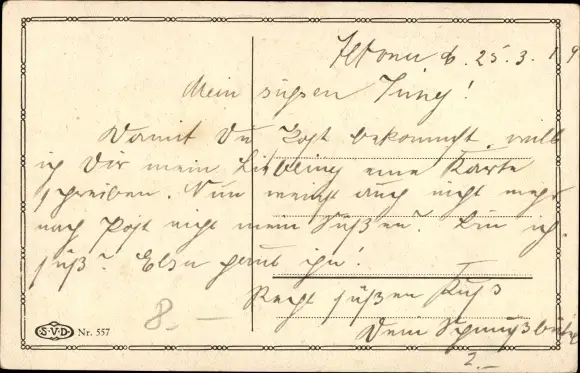 Altona d. 25.3.19
Mein süsser Jung!
Damit Du Post bekommst, will
ich Dir mein Liebling eine Karte
schreiben. Nun weinst auch nicht mehr
nach Post nicht mein Süßer? Bin ich
süß? Else
Recht süßen Kuß
Dein
8.-
2.-
S.V.D. Nr. 557